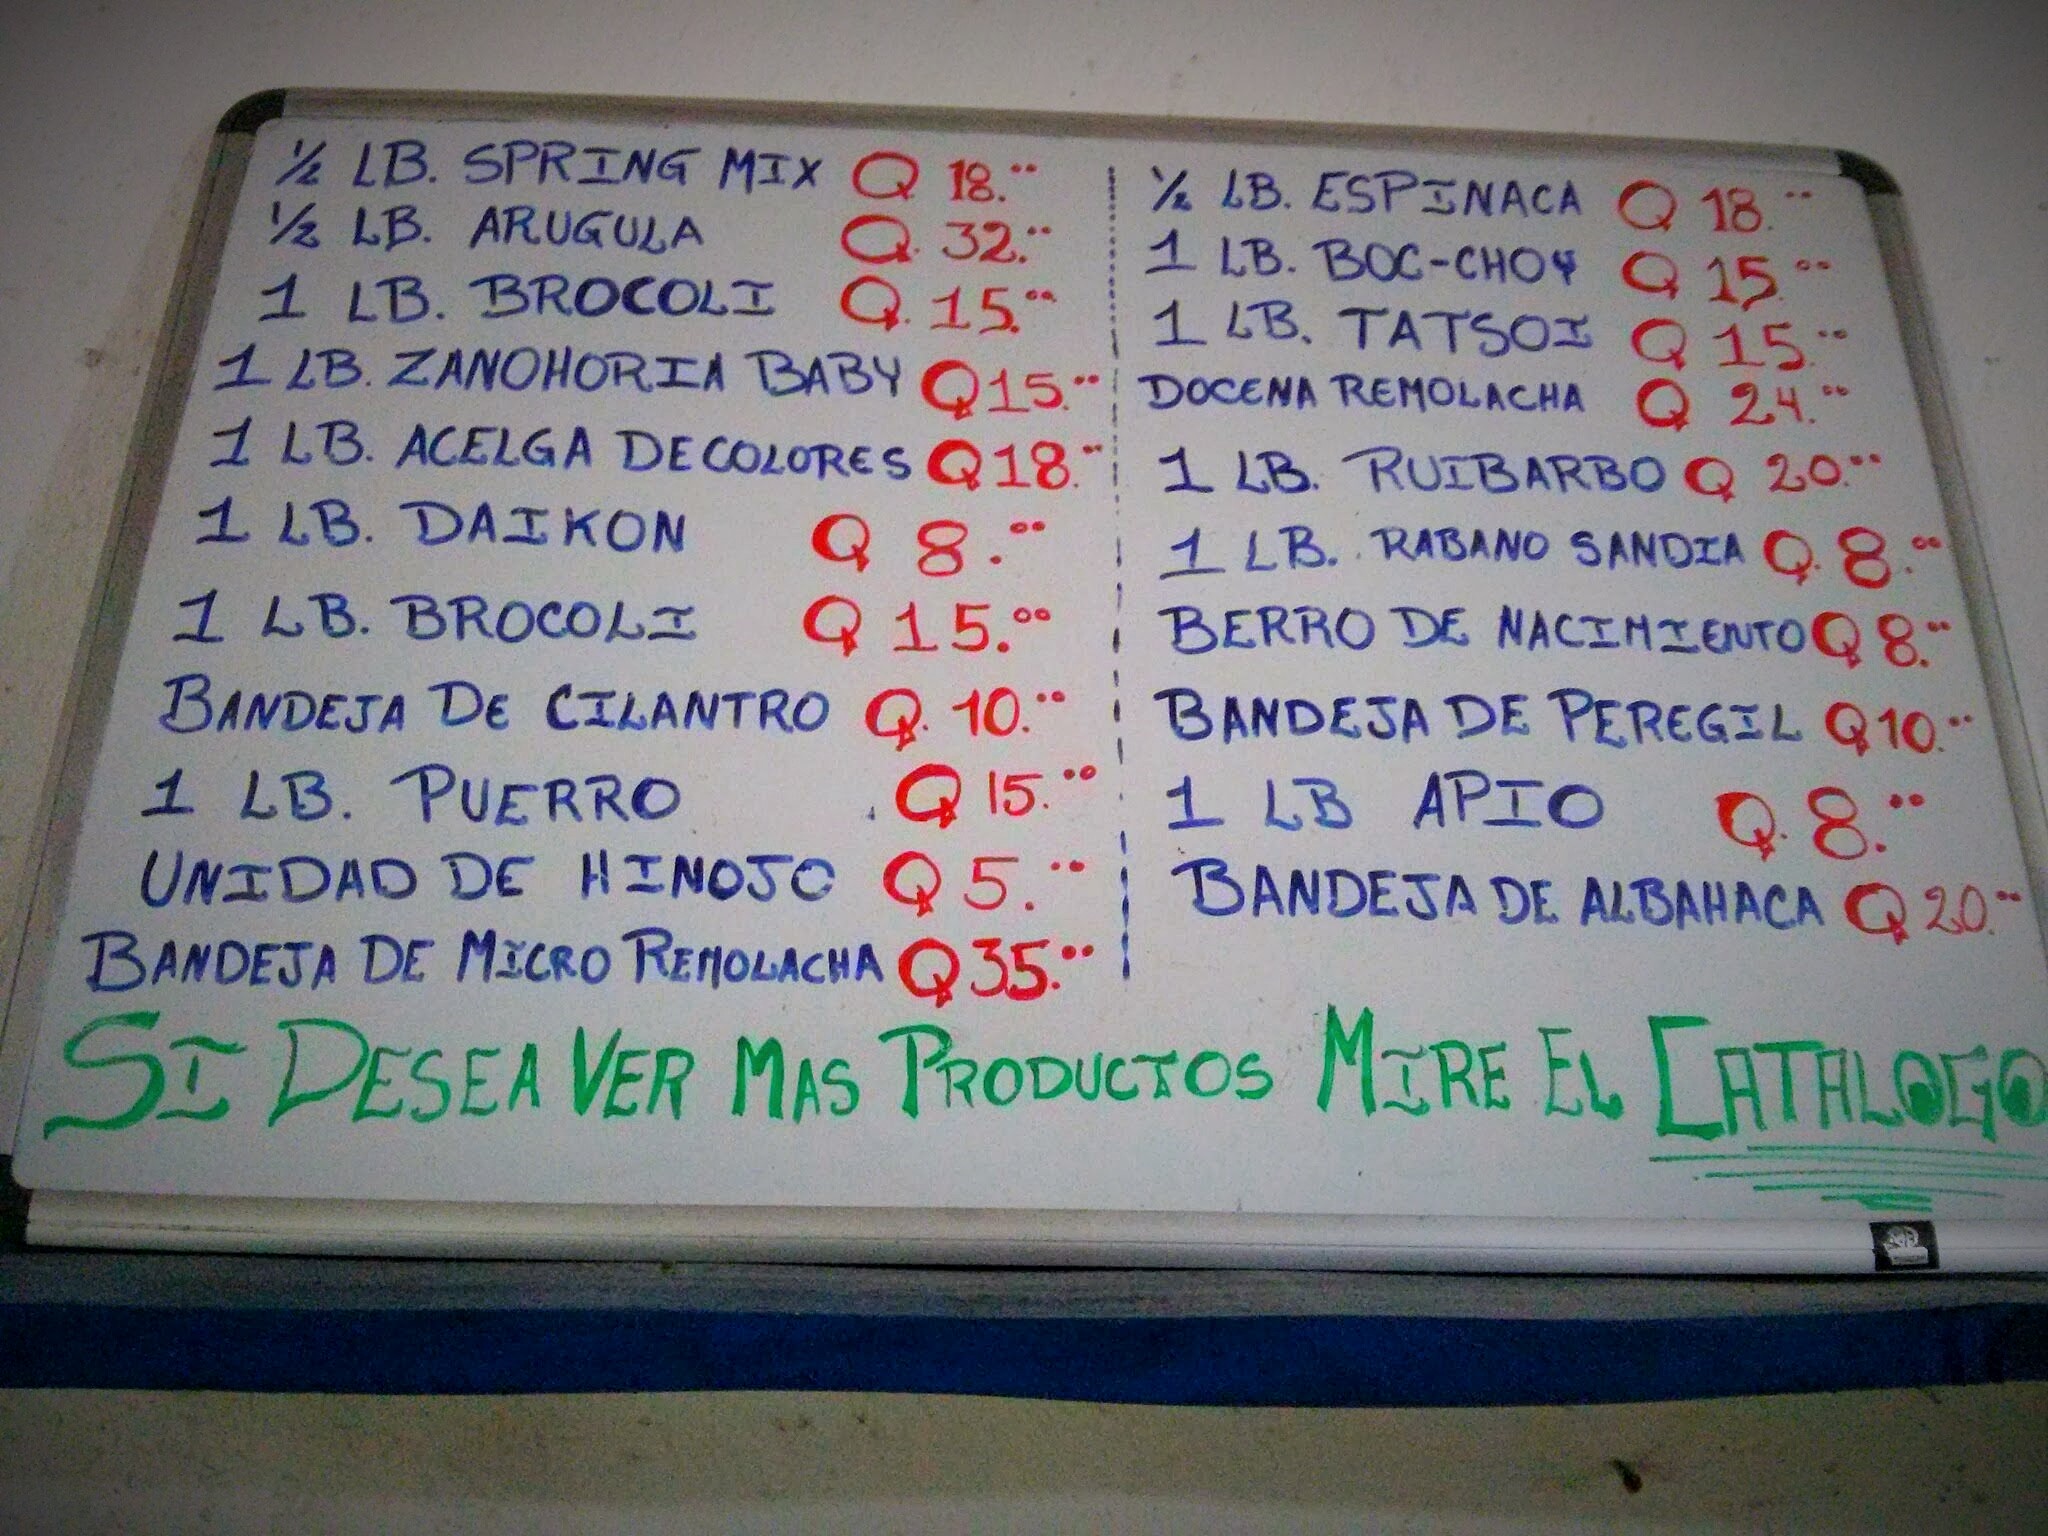 ½ LB. SPRING MIX Q 18.00
½ LB. ARUGULA Q. 32.00
1 LB. BROCOLI Q. 15.00
1 LB. ZANOHORIA BABY Q 15.00
1 LB. ACELGA DE COLORES Q 18.00
1 LB. DAIKON Q 8.00
1 LB. BROCOLI Q 15.00
BANDEJA DE CILANTRO Q. 10.00
1 LB. PUERRO Q 15.00
UNIDAD DE HINOJO Q 5.00
BANDEJA DE MICRO REMOLACHA Q 35.00
½ LB. ESPINACA Q 18.00
1 LB. BOC-CHOY Q 15.00
1 LB. TATSOI Q 15.00
DOCENA REMOLACHA Q 24.00
1 LB. RUIBARBO Q 20.00
1 LB. RABANO SANDIA Q. 8.00
BERRO DE NACIMIENTO Q 8.00
BANDEJA DE PEREGIL Q 10.00
1 LB APIO Q. 8.00
BANDEJA DE ALBAHACA Q 20.00
SI DESEA VER MAS PRODUCTOS MIRE EL CATALOGO